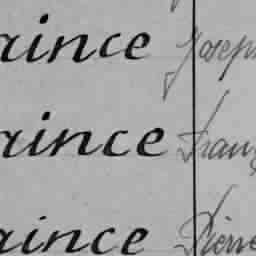 aince Joseph
aince Franç
aince Pierre